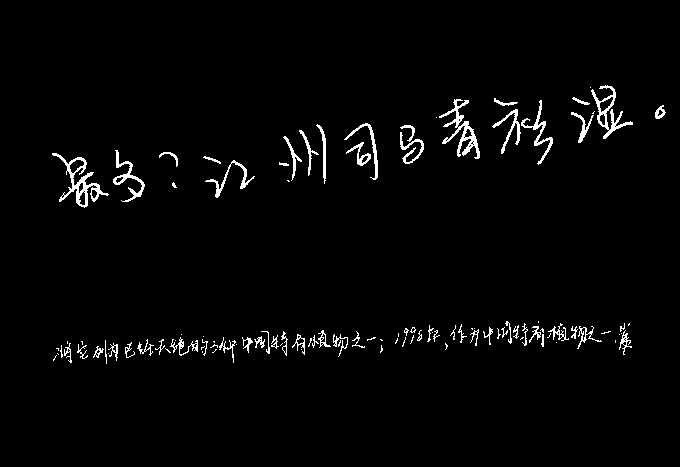 最多?江州司马青衫湿。
将它列为已经灭绝的3种中国特有植物之一;1998年,作为中国特有植物之一,炭